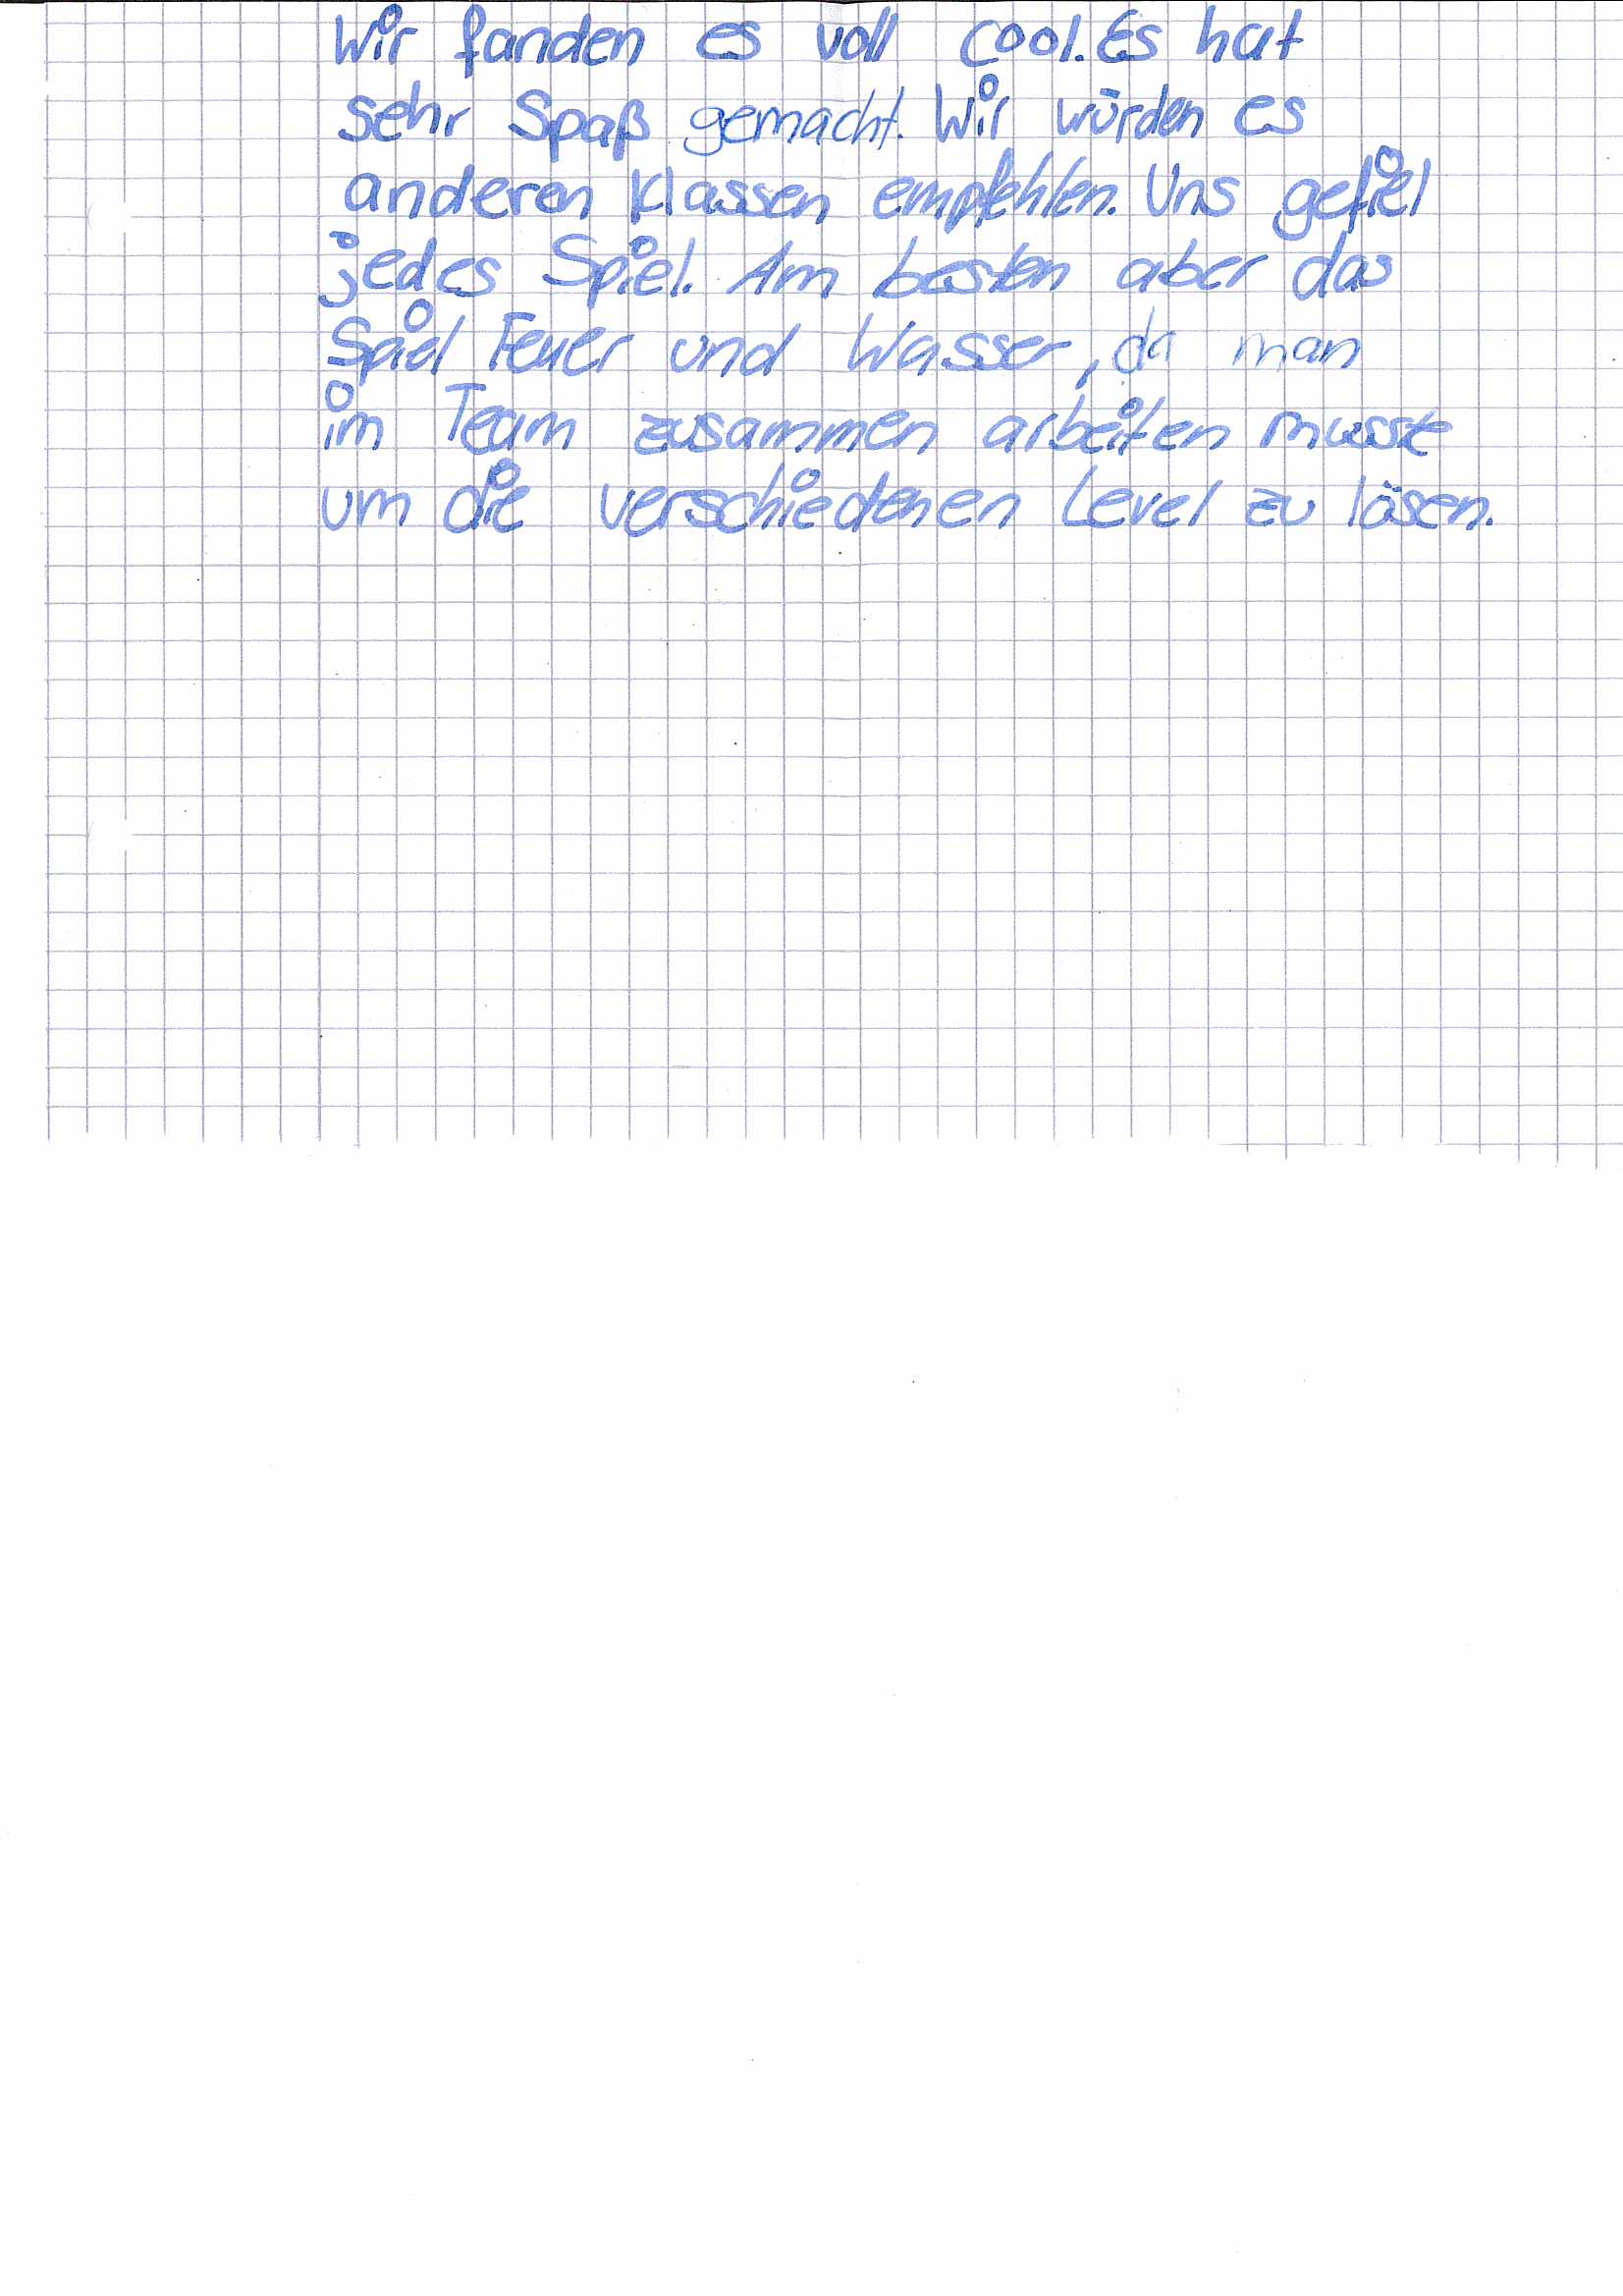 Wir fanden es voll cool. Es hat
sehr Spaß gemacht. Wir würden es
anderen Klassen empfehlen. Uns gefiel
jedes Spiel. Am besten aber das
Spiel Feuer und Wasser, da man
im Team zusammen arbeiten musste
um die verschiedenen Level zu lösen.